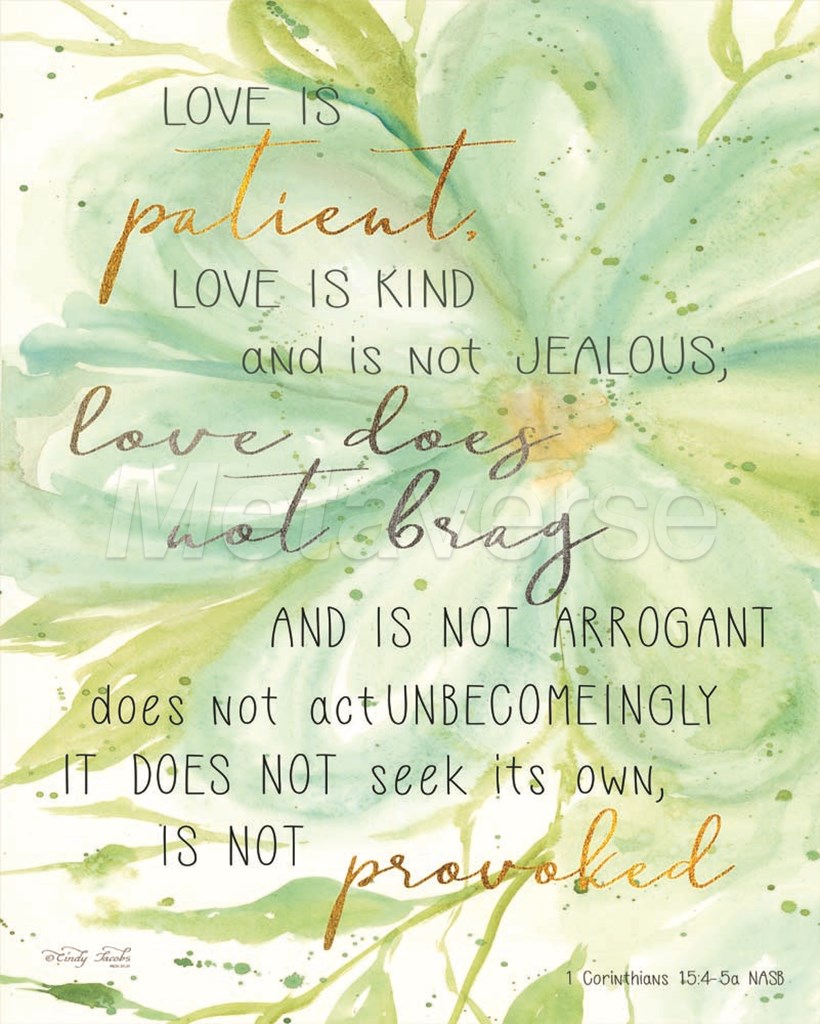 LOVE IS
patient,
LOVE IS KIND
and is not JEALOUS;
love does
not brag
Metaverse
AND IS NOT ARROGANT
does not act UNBECOMEINGLY
IT DOES NOT seek its own,
IS NOT
provoked
© Cindy Jacobs
1 Corinthians 15:4-5a NASB